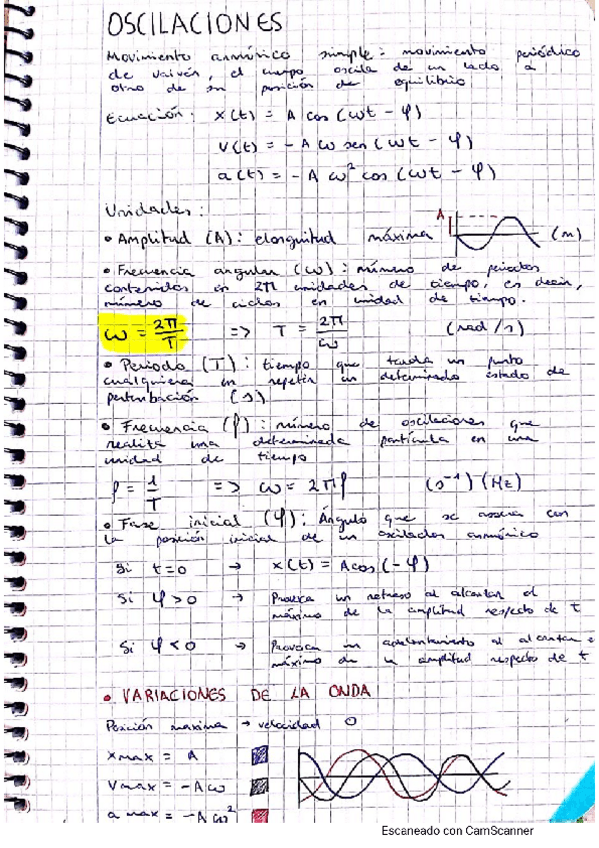 OSCILACIONES
Movimiento armónico simple: movimiento periódico
de vaivén, el cuerpo oscila de un lado a
otro de su posición de equilibrio
Ecuación: x(t) = A cos(ωt - φ)
v(t) = -Aω sen(ωt - φ)
a(t) = -Aω² cos(ωt - φ)
Unidades:
• Amplitud (A): elonguitud máxima A (m)
• Frecuencia angular (ω): número de periodos
contenidos en 2π unidades de tiempo, es decir,
número de ciclos en unidad de tiempo.
ω = 2π/T => T = 2π/ω (rad/s)
• Periodo (T): tiempo que tarda un punto
cualquiera en repetir un determinado estado de
perturbación (s)
• Frecuencia (f): número de oscilaciones que
realiza una determinada partícula en una
unidad de tiempo
f = 1/T => ω = 2πf (s⁻¹) (Hz)
• Fase inicial (φ): Ángulo que se asocia con
la posición inicial de un oscilador armónico
Si t=0 → x(t) = A cos(-φ)
Si φ>0 → Provoca un retraso al alcanzar el
máximo de la amplitud respecto de t
Si φ<0 → Provoca un adelantamiento al alcanzar e
máximo de la amplitud respecto de t
• VARIACIONES DE LA ONDA
Posición maxima → velocidad 0
x max = A
v max = -Aω
a max = -Aω²
Escaneado con CamScanner